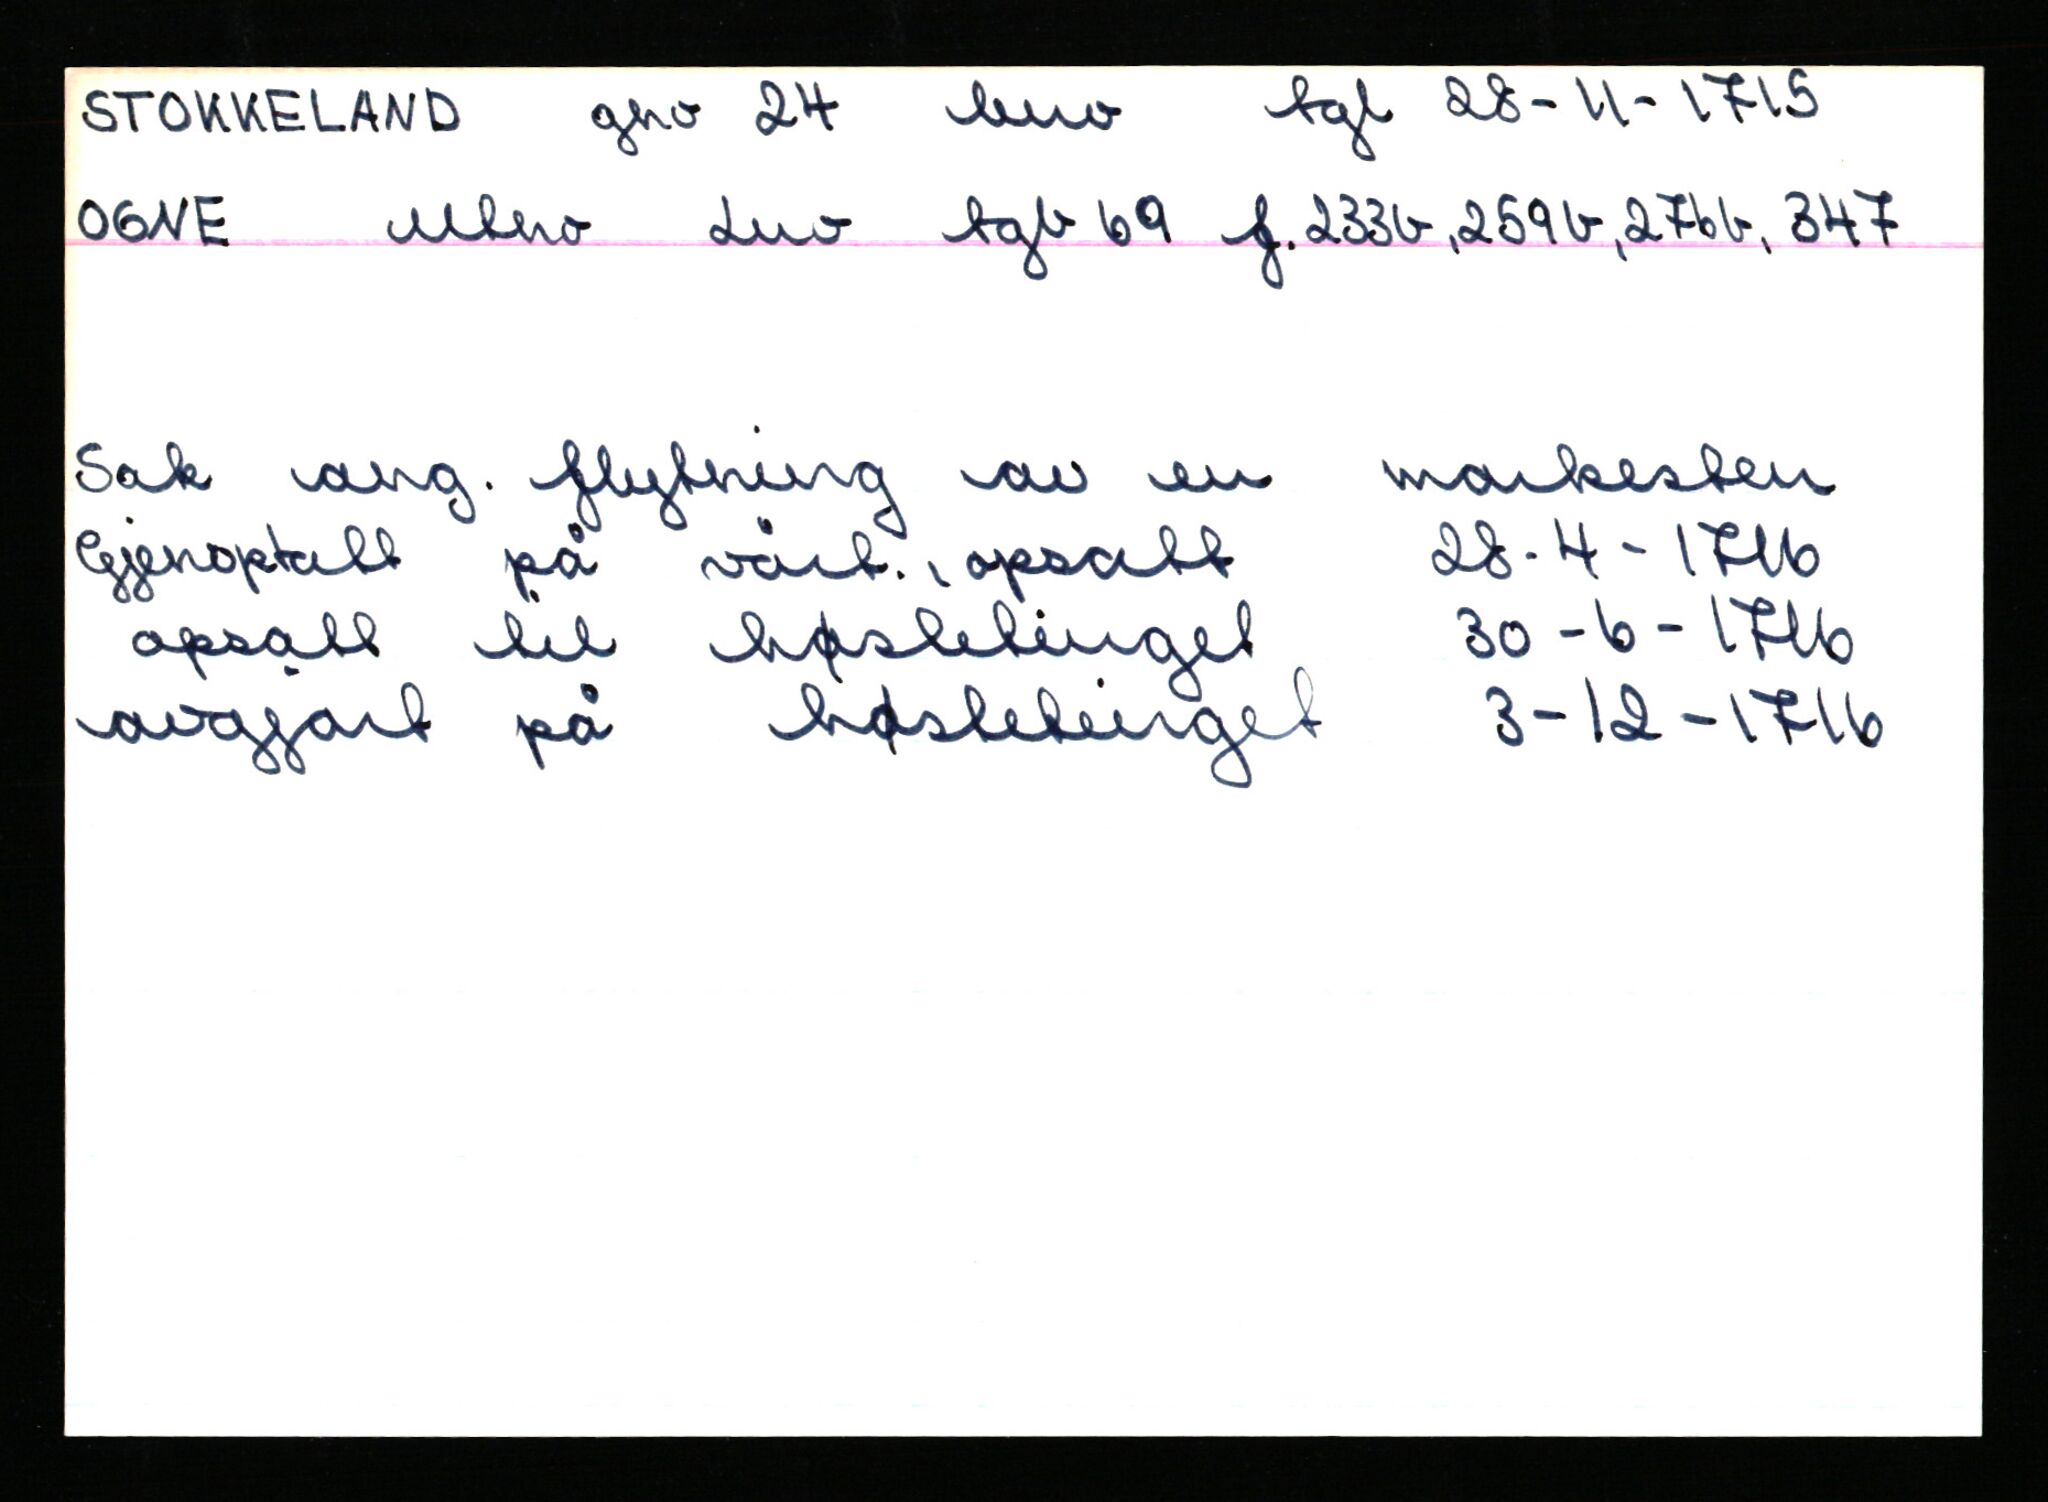 STOKKELAND gno 24 bno tgl 28-11-1715
OGNE Mtno Lno tgb 69 f. 233b, 259b, 276b, 347
Sak ang. flytning av en markesten
Gjenoptatt på vårt., opsatt 28-4-1716
opsatt til høstetinget 30-6-1716
avgjort på høstetinget 3-12-1716